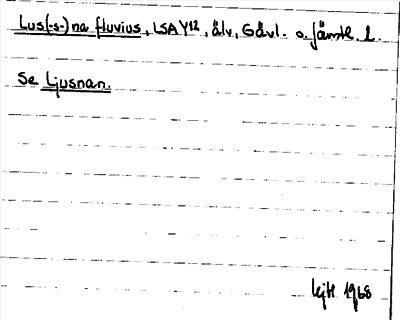 Lus(-s-)na fluvius, LSA Y12, älv, Gävl. o. Jämtl. l.
Se Ljusnan.
1968